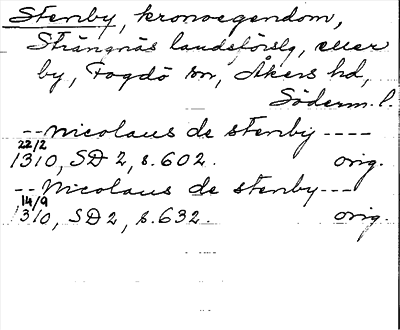 Stenby, kronoegendom,
Strängnäs landsförslg, eller
by, Fogdö sn, Åkers hd,
Söderm. l.
-- Nicolaus de stenby ----
22/2
1310, SD 2, s. 602. orig.
-- Nicolaus de stenby ----
14/9
1310, SD 2, s. 632. orig.